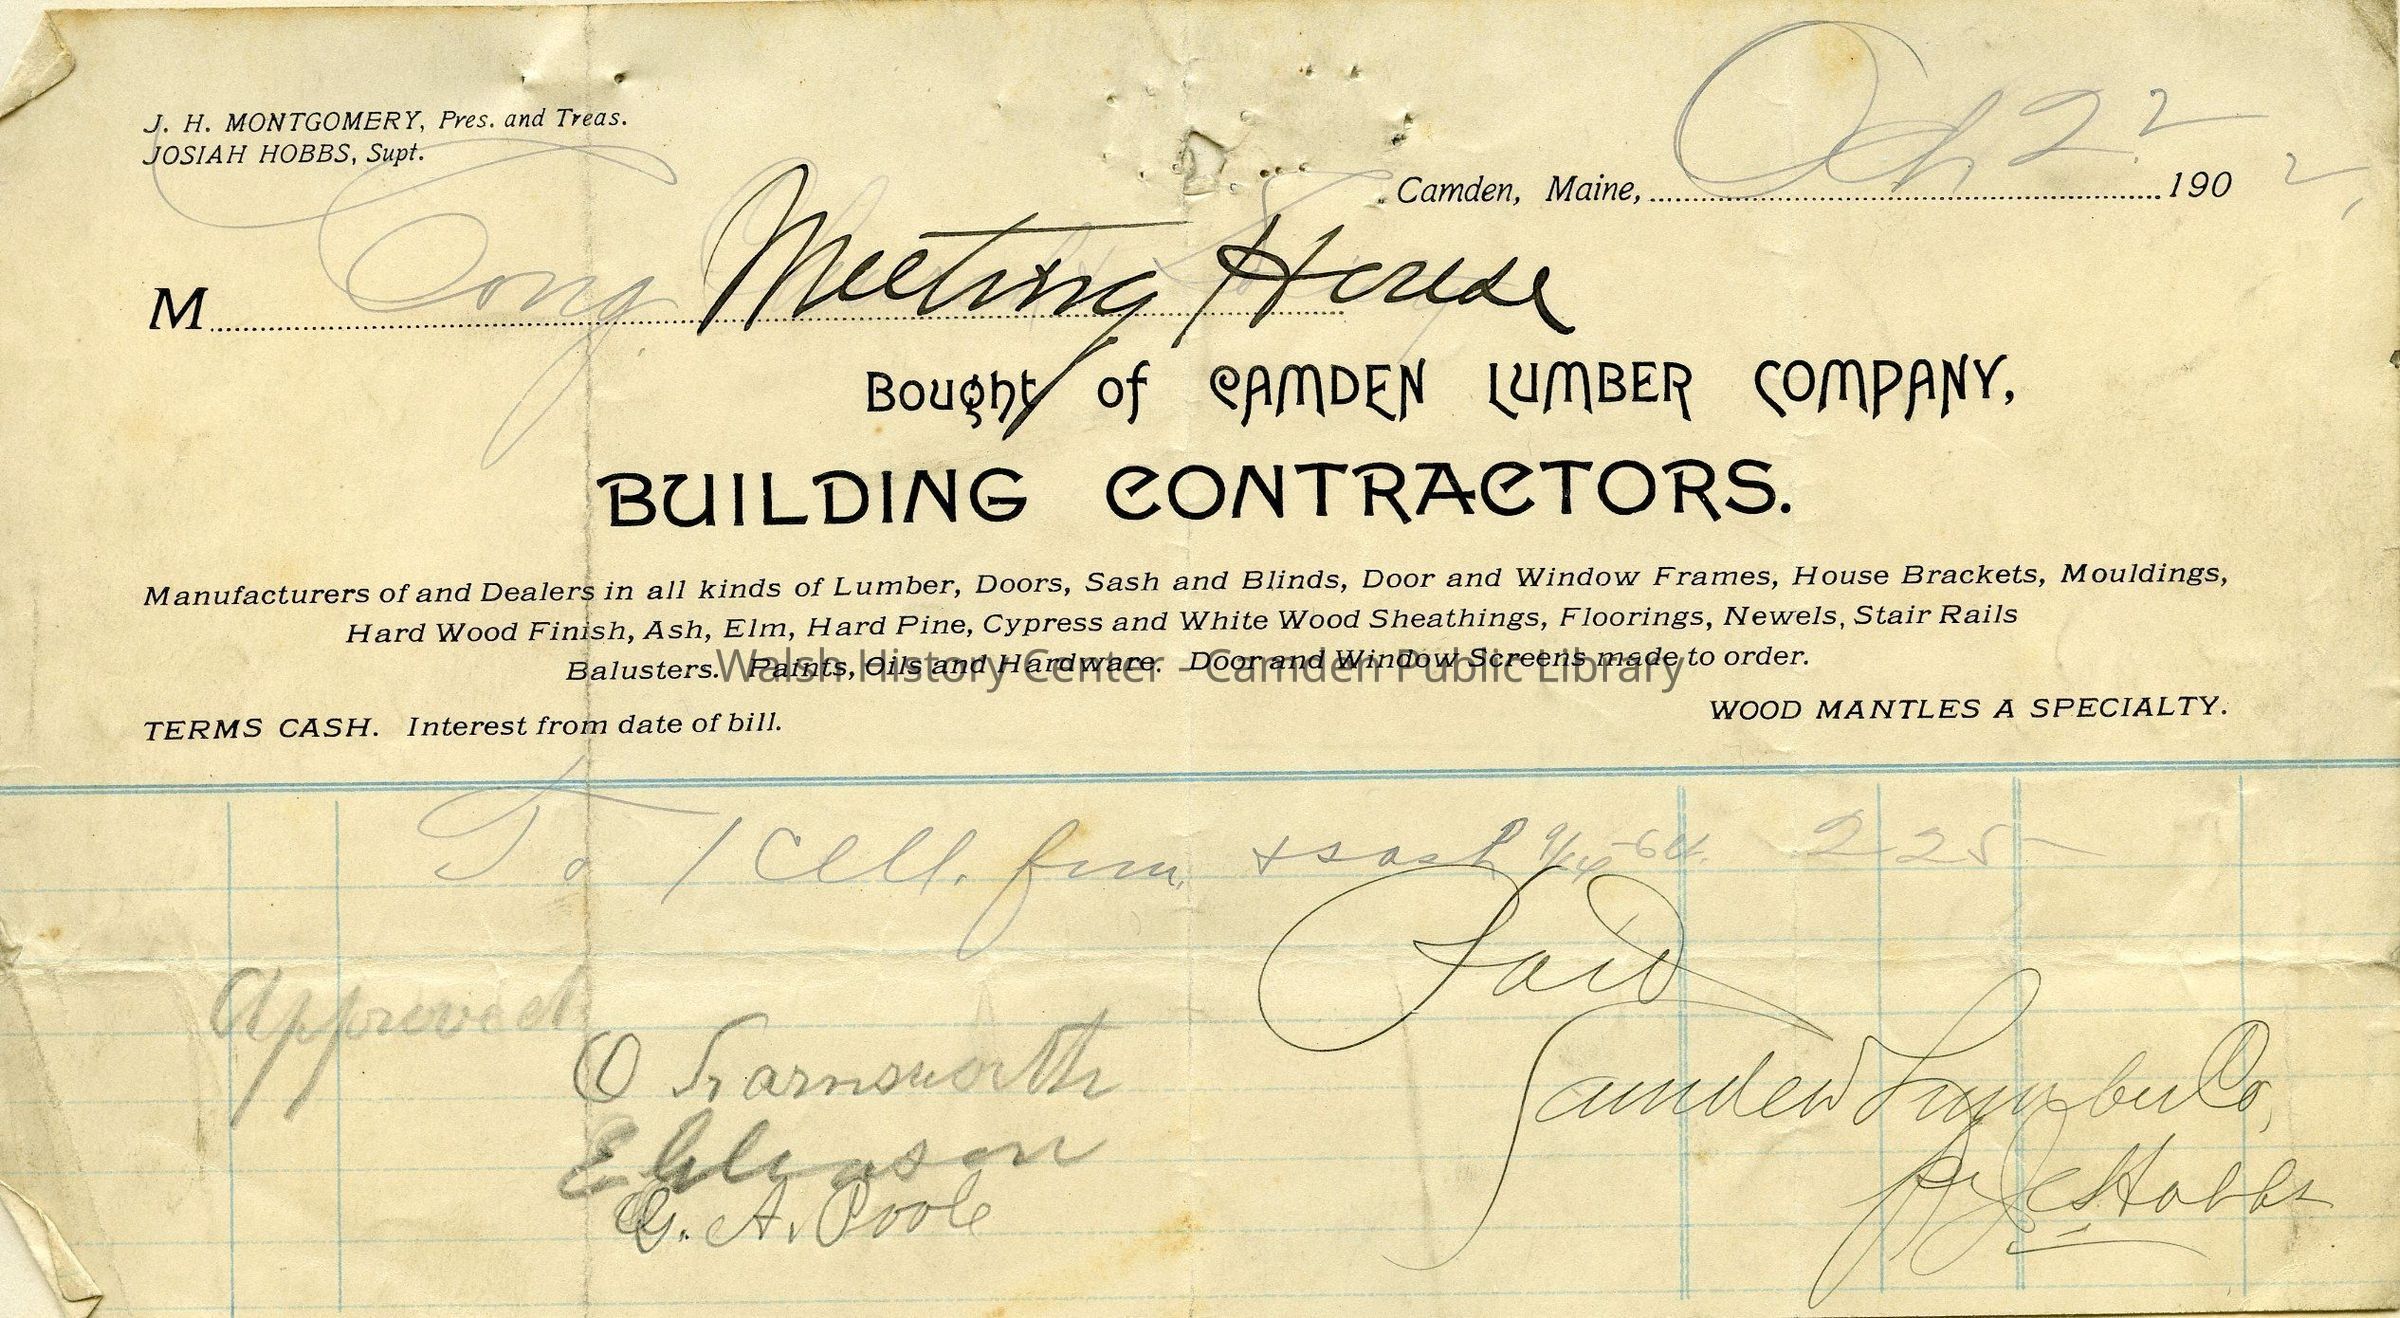 J. H. MONTGOMERY, Pres. and Treas.
JOSIAH HOBBS, Supt.
Camden, Maine, Oct 22 190 2,
M Cong Meeting House
Bought of CAMDEN LUMBER COMPANY,
BUILDING CONTRACTORS.
Manufacturers of and Dealers in all kinds of Lumber, Doors, Sash and Blinds, Door and Window Frames, House Brackets, Mouldings,
Hard Wood Finish, Ash, Elm, Hard Pine, Cypress and White Wood Sheathings, Floorings, Newels, Stair Rails
Balusters. Paints, Oils and Hardware. Door and Window Screens made to order.
Walsh History Center - Camden Public Library
TERMS CASH. Interest from date of bill.
WOOD MANTLES A SPECIALTY.
To 1 Cell. + sash 2 25
Paid
Approved
Camden Lumber Co,
O Farnsworth
E Gleason
Hobbs
G. A. Poole